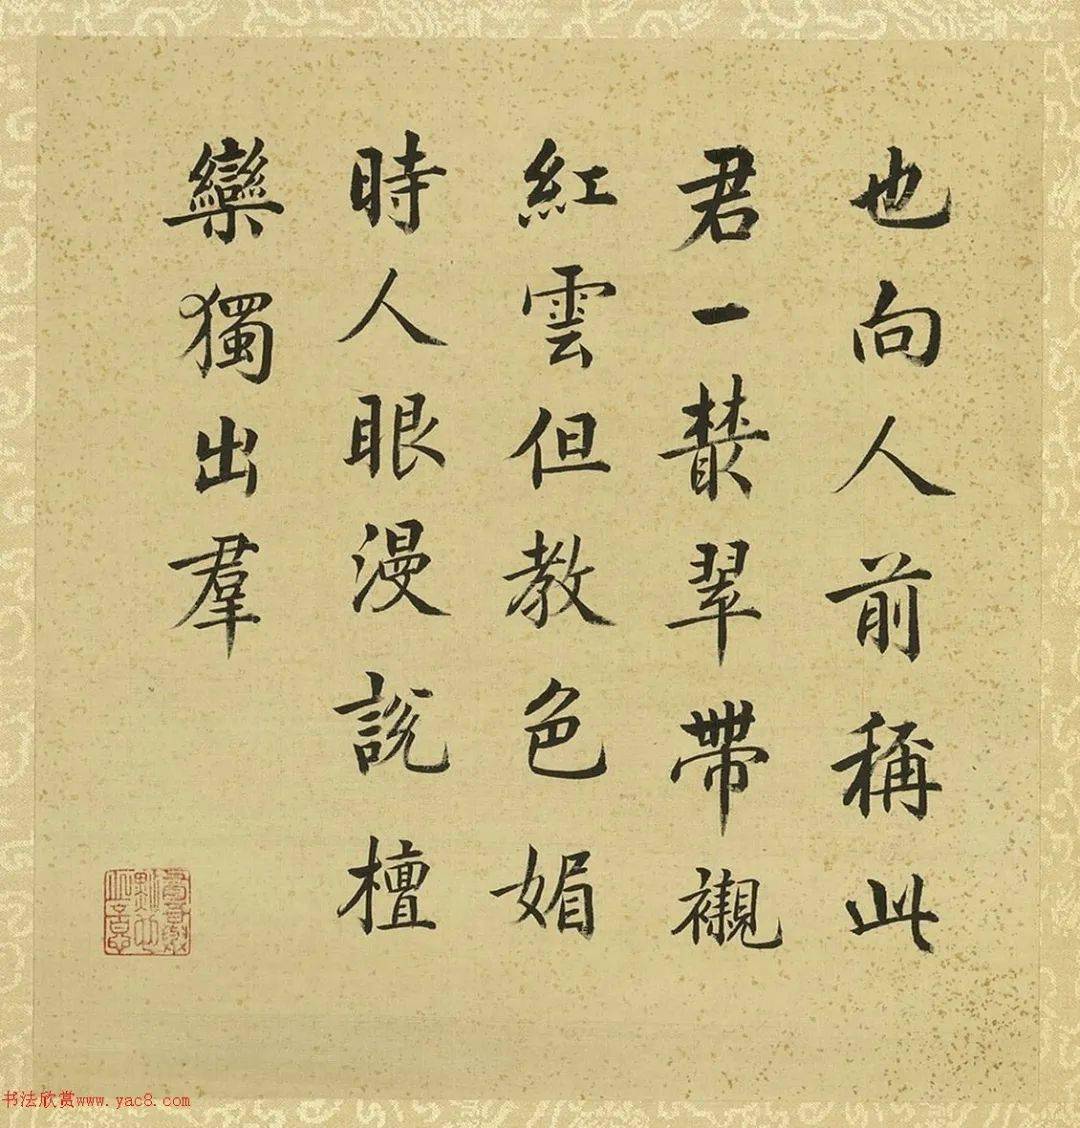 也向人前稱此
君一叢翠帶襯
紅雲但教色媚
時人眼漫説檀
欒獨出羣
书法欣赏www.yac8.com